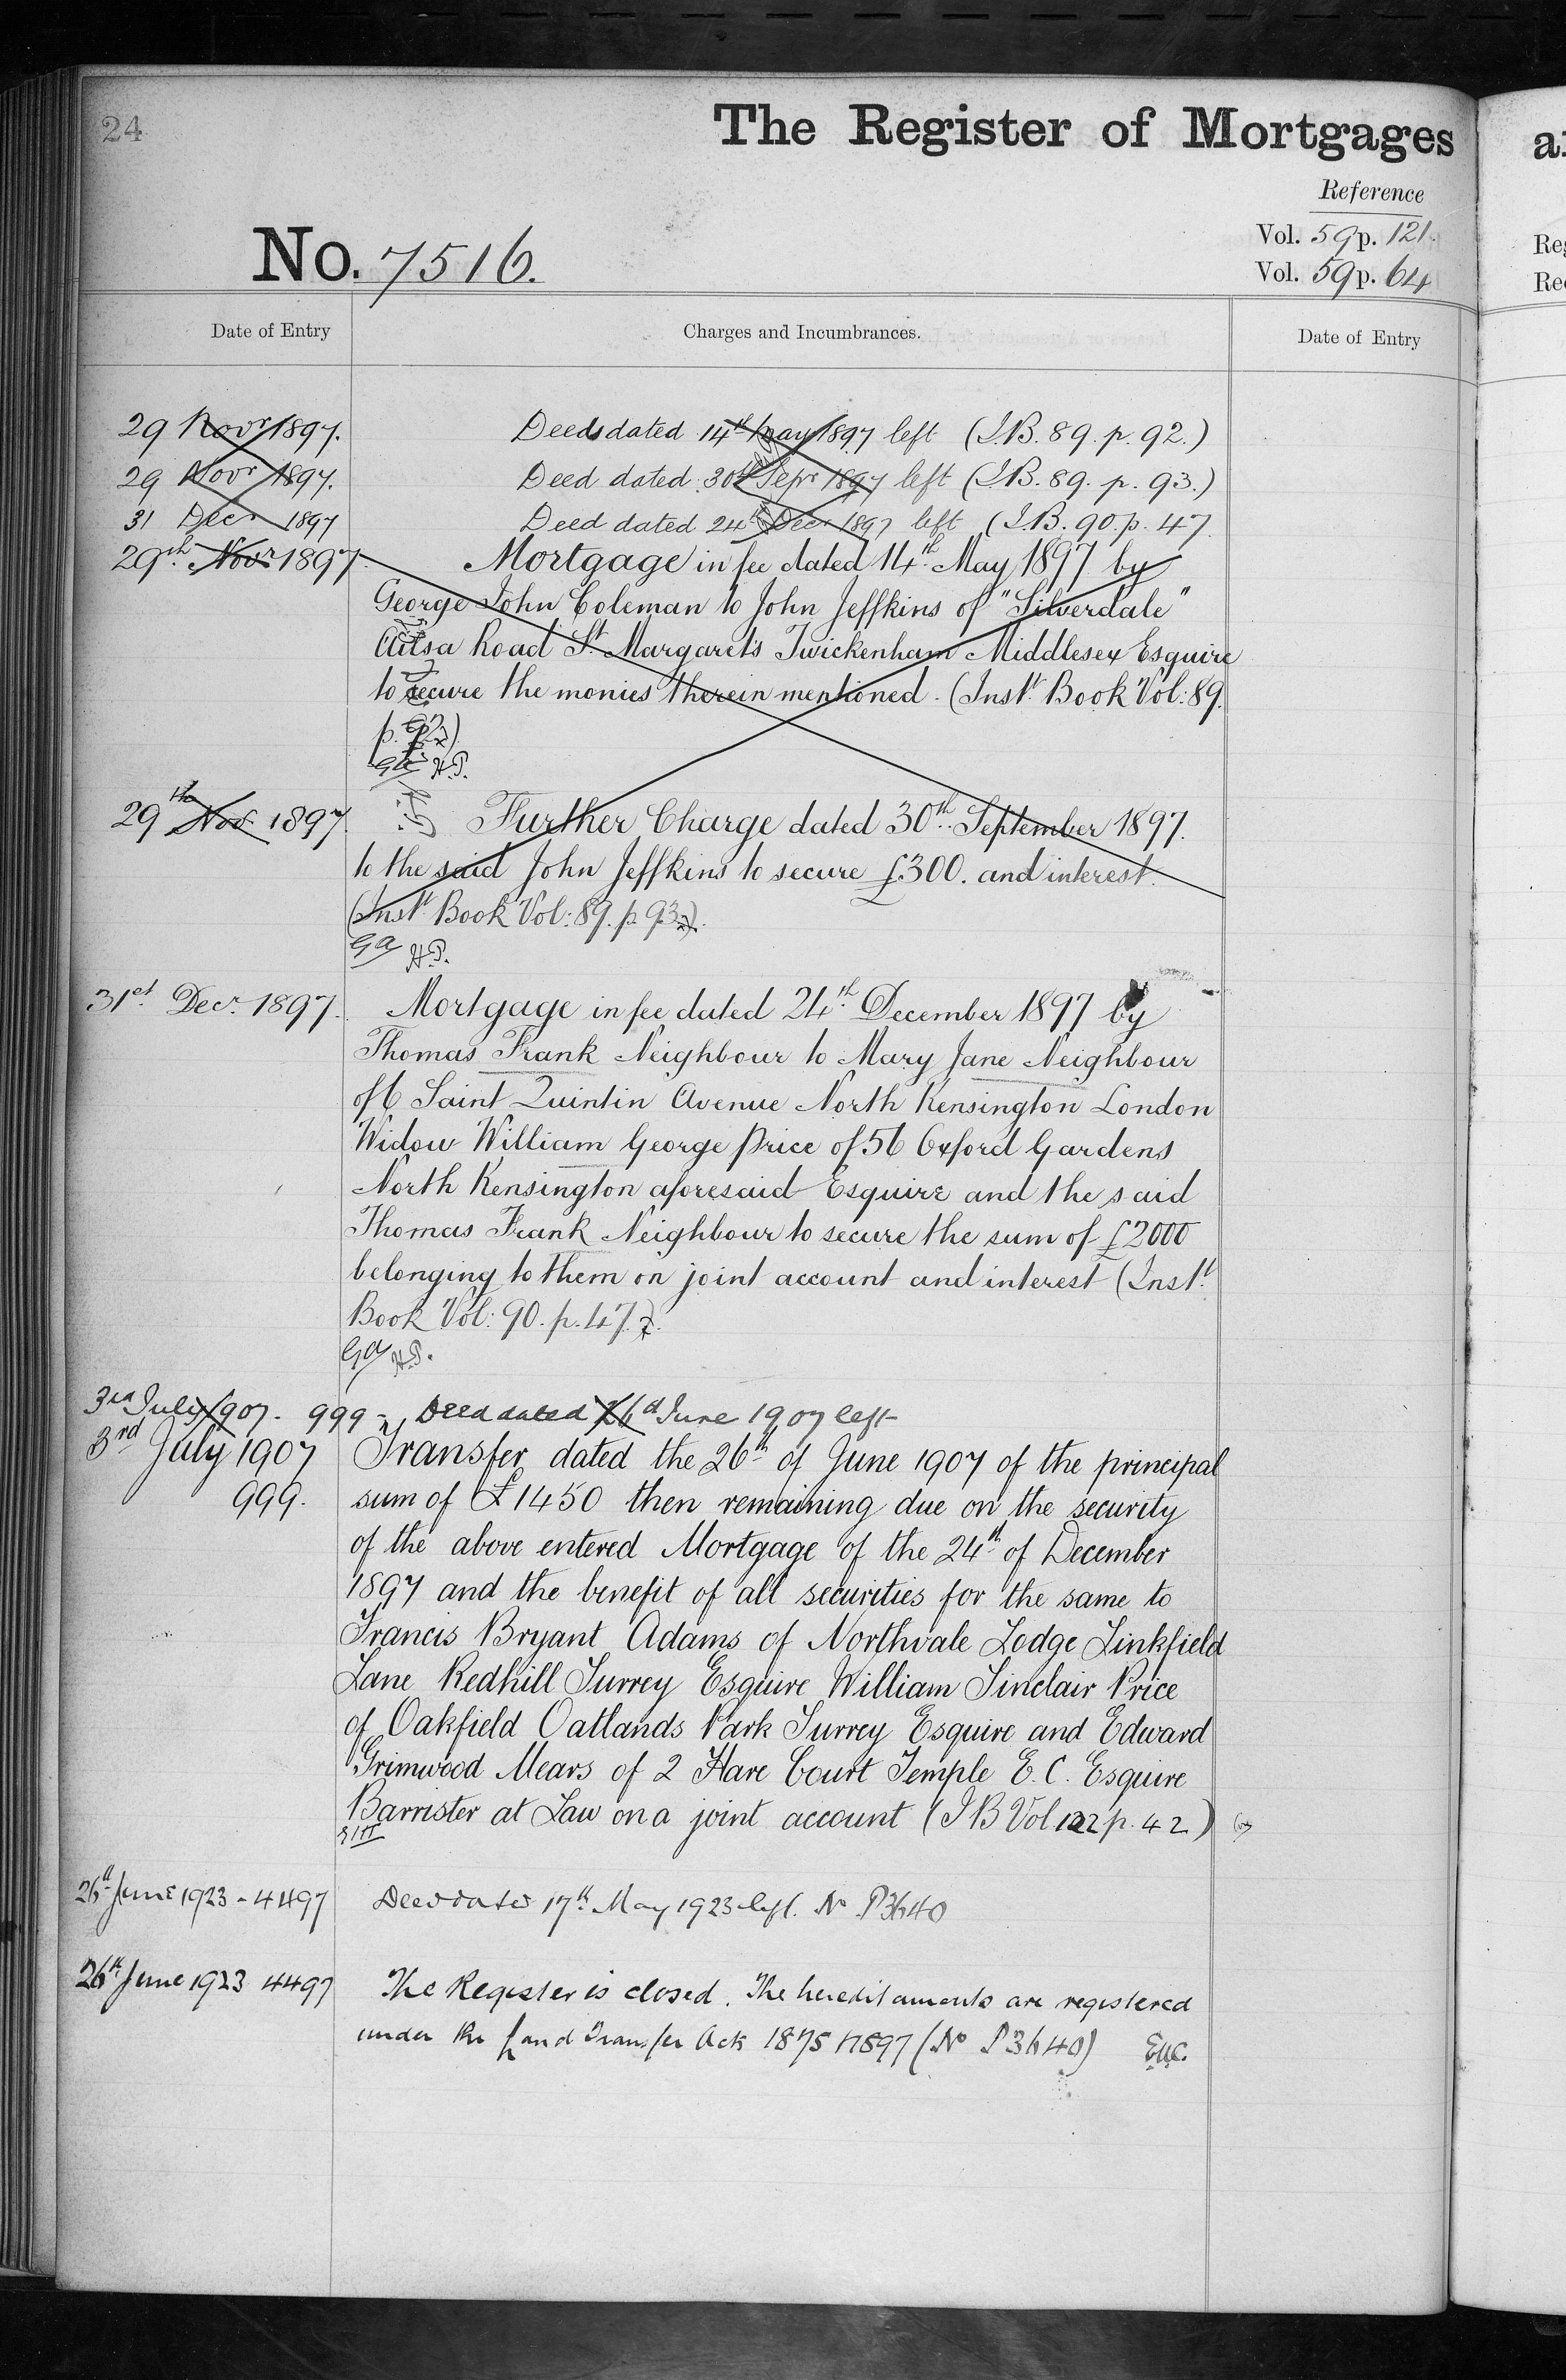 24
The Register of Mortgages
Reference
Vol. 59 p. 121.
Vol. 59 p. 64
No. 7516.
Date of Entry
Charges and Incumbrances.
Date of Entry
29 Novr 1897. Deeds dated 14th May 1897 left (I.B. 89. p. 92.)
29 Novr 1897. Deed dated 30th Sepr 1897 left (I.B. 89. p. 93.)
31 Decr 1897 Deed dated 24th Decr 1897 left (I.B. 90. p. 47.
29th Novr 1897. Mortgage in fee dated 14th May 1897 by
George John Coleman to John Jeffkins of "Silverdale"
Ailsa Road St. Margaret's Twickenham Middlesex Esquire
to secure the monies therein mentioned. (Inst. Book Vol: 89.
p. 92)
GA H.P.
29th Nov. 1897 Further Charge dated 30th September 1897.
to the said John Jeffkins to secure £300. and interest.
(Inst. Book Vol: 89. p. 93.)
GA H.P.
31st Decr. 1897. Mortgage in fee dated 24th December 1897 by
Thomas Frank Neighbour to Mary Jane Neighbour
of 6 Saint Quintin Avenue North Kensington London
Widow William George Price of 56 Oxford Gardens
North Kensington aforesaid Esquire and the said
Thomas Frank Neighbour to secure the sum of £2000
belonging to them on joint account and interest (Inst.
Book Vol: 90. p. 47.)
GA H.P.
3rd July 1907. 999 - Deed dated 26th June 1907 left
3rd July 1907 Transfer dated the 26th of June 1907 of the principal
999. sum of £1450 then remaining due on the security
of the above entered Mortgage of the 24th of December
1897 and the benefit of all securities for the same to
Francis Bryant Adams of Northvale Lodge Linkfield
Lane Redhill Surrey Esquire William Sinclair Price
of Oakfield Oatlands Park Surrey Esquire and Edward
Grimwood Mears of 2 Hare Court Temple E.C. Esquire
Barrister at Law on a joint account (I B Vol 122 p. 42)
26th June 1923 - 4497 Deed dated 17th May 1923 left. No P3640
26th June 1923 4497 The Register is closed. The hereditaments are registered
under the Land Transfer Acts 1875 & 1897 (No P3640)